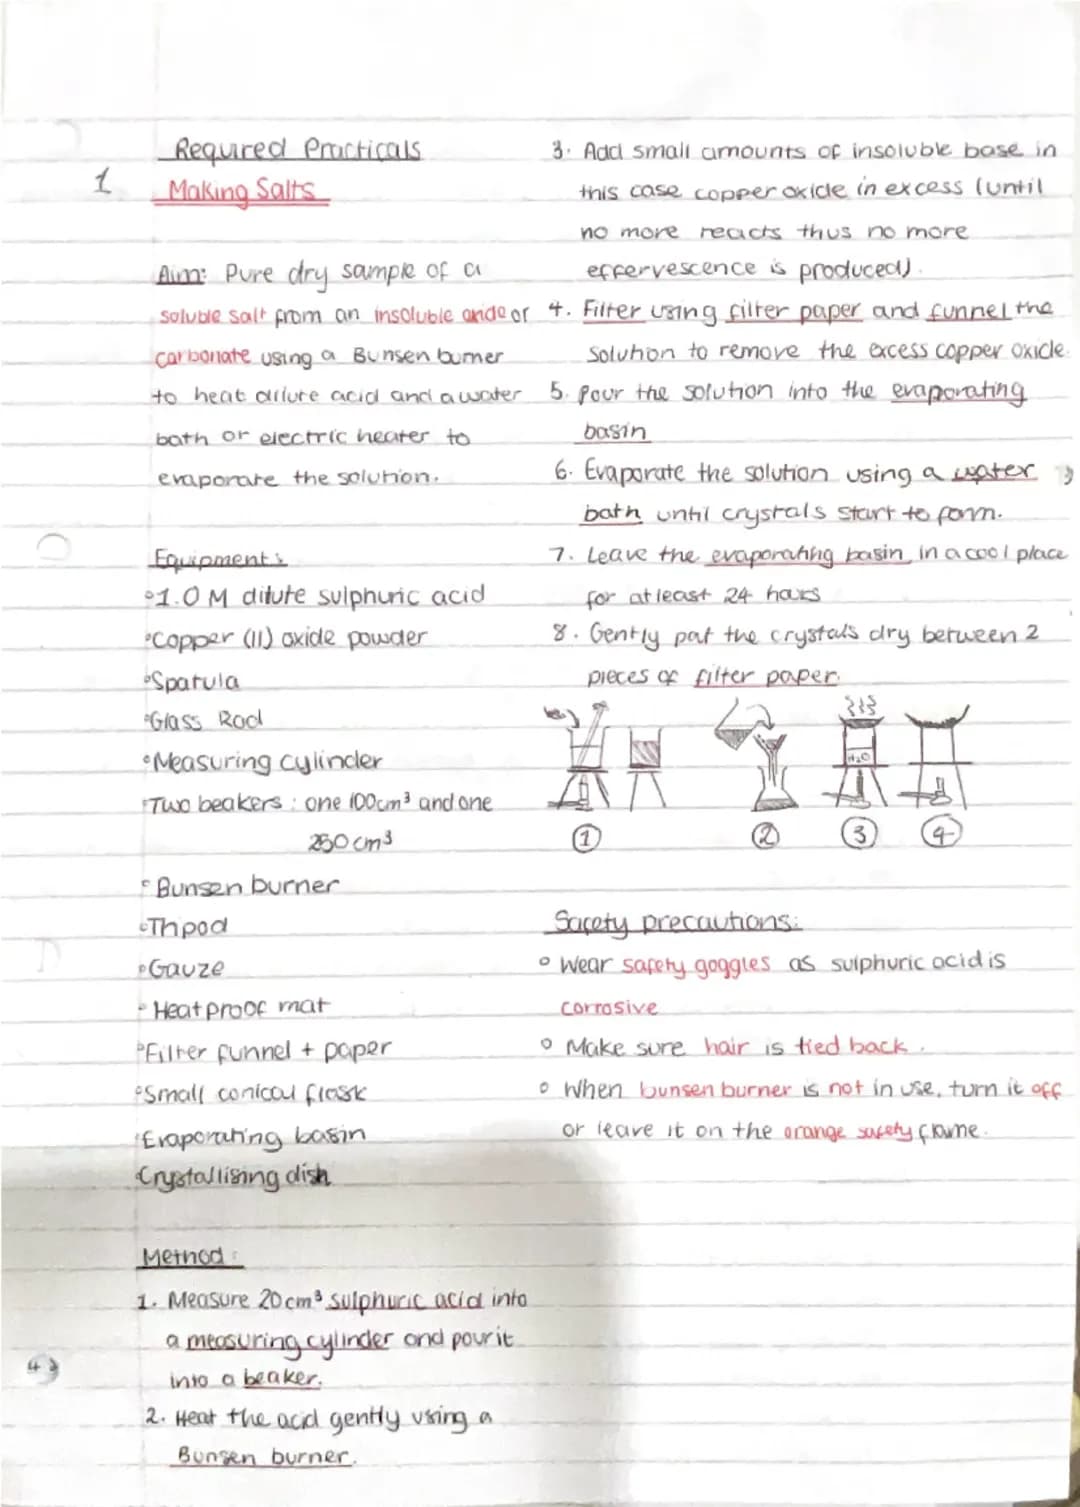 Required Practicals
1
Making Salts
Aim: Pure dry sample of a
soluble salt from an insoluble oxide or
carbonate using a Bunsen burner
to heat dilute acid and a water
bath or electric heater to
evaporate the solution.
Equipment:
1.0 M dilute sulphuric acid
Copper (II) oxide powder
Spatula
Glass Rod
Measuring cylinder
Two beakers : one 100cm³ and one
250 cm³
Bunsen burner
Tripod
Gauze
Heatproof mat
Filter funnel + paper
Small conical flask
Evaporating basin
Crystallising dish
Method:
1. Measure 20cm³ sulphuric acid into
a measuring cylinder and pour it
into a beaker.
2. Heat the acid gently using a
Bunsen burner.
3. Add small amounts of insoluble base in
this case copper oxide in excess (until
no more reacts thus no more
effervescence is produced).
4. Filter using filter paper and funnel the
solution to remove the excess copper oxide.
5. Pour the solution into the evaporating
basin
6. Evaporate the solution using a water
bath until crystals start to form.
7. Leave the evaporating basin in a cool place
for at least 24 hours
8. Gently pat the crystals dry between 2
pieces of filter paper.
H₂O
1 2 3 4
Safety precautions:
Wear safety goggles as sulphuric acid is
corrosive
Make sure hair is tied back.
When bunsen burner is not in use, turn it off
or leave it on the orange safety flame.